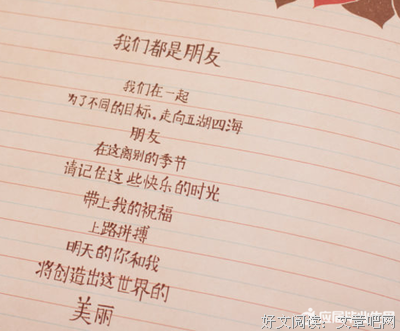 我们都是朋友
我们在一起
为了不同的目标。走向五湖四海
朋友
在这离别的季节
请记住这些快乐的时光
带上我的祝福
上路拼搏
明天的你和我
将创造出这世界的
美丽
好文阅读：文章吧网